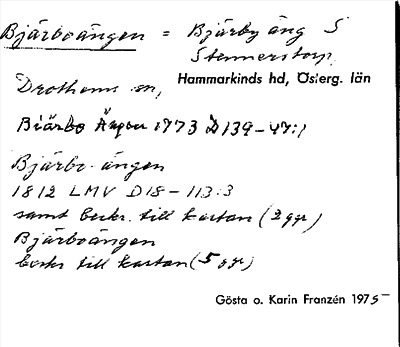 Bjärboängen = Bjärby äng S
Stennerstorp,
Drothems sn,
Hammarkinds hd, Österg. län
Biärbo Ängen 1773 D139-47:1
Bjärbo-ängen
1812 LMV D18-113:3
samt beskr. till kartan (2 ggr)
Bjärboängen
beskr till kartan (5 ggr)
Gösta o. Karin Franzén 1975